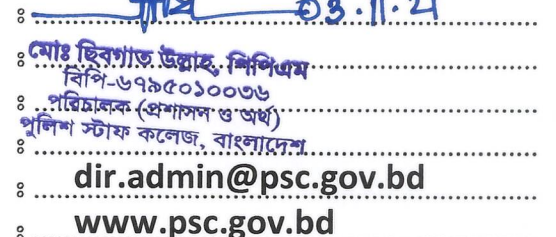 : ০৩.১১.২১
: মোঃ ছিবগাত উল্লাহ, পিপিএম
: বিপি-৬৭৯৫০১০০৩৬
: পরিচালক (প্রশাসন ও অর্থ)
পুলিশ স্টাফ কলেজ, বাংলাদেশ
: dir.admin@psc.gov.bd
: www.psc.gov.bd